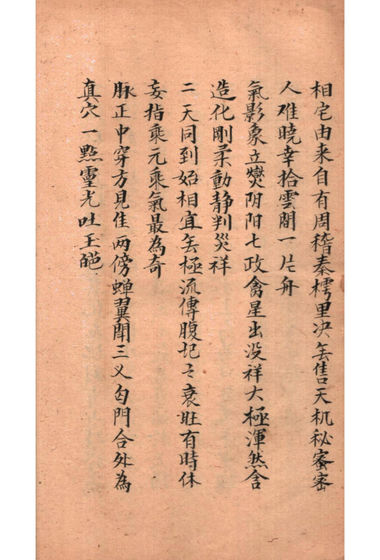 相宅由来自有周稽秦樗里决无售天机秘蜜密
人难晓幸拾雲閒一片舟
氣影象立爕阴阳七政禽星出没祥大極渾然含
造化剛柔動静判災祥
二天同到始相宜无極流傳腹記之衰旺有時休
妄指乘元乘氣最為奇
脉正中穿方見佳两傍蝉翼閗三义自門合处為
真穴一點靈光吐玉葩